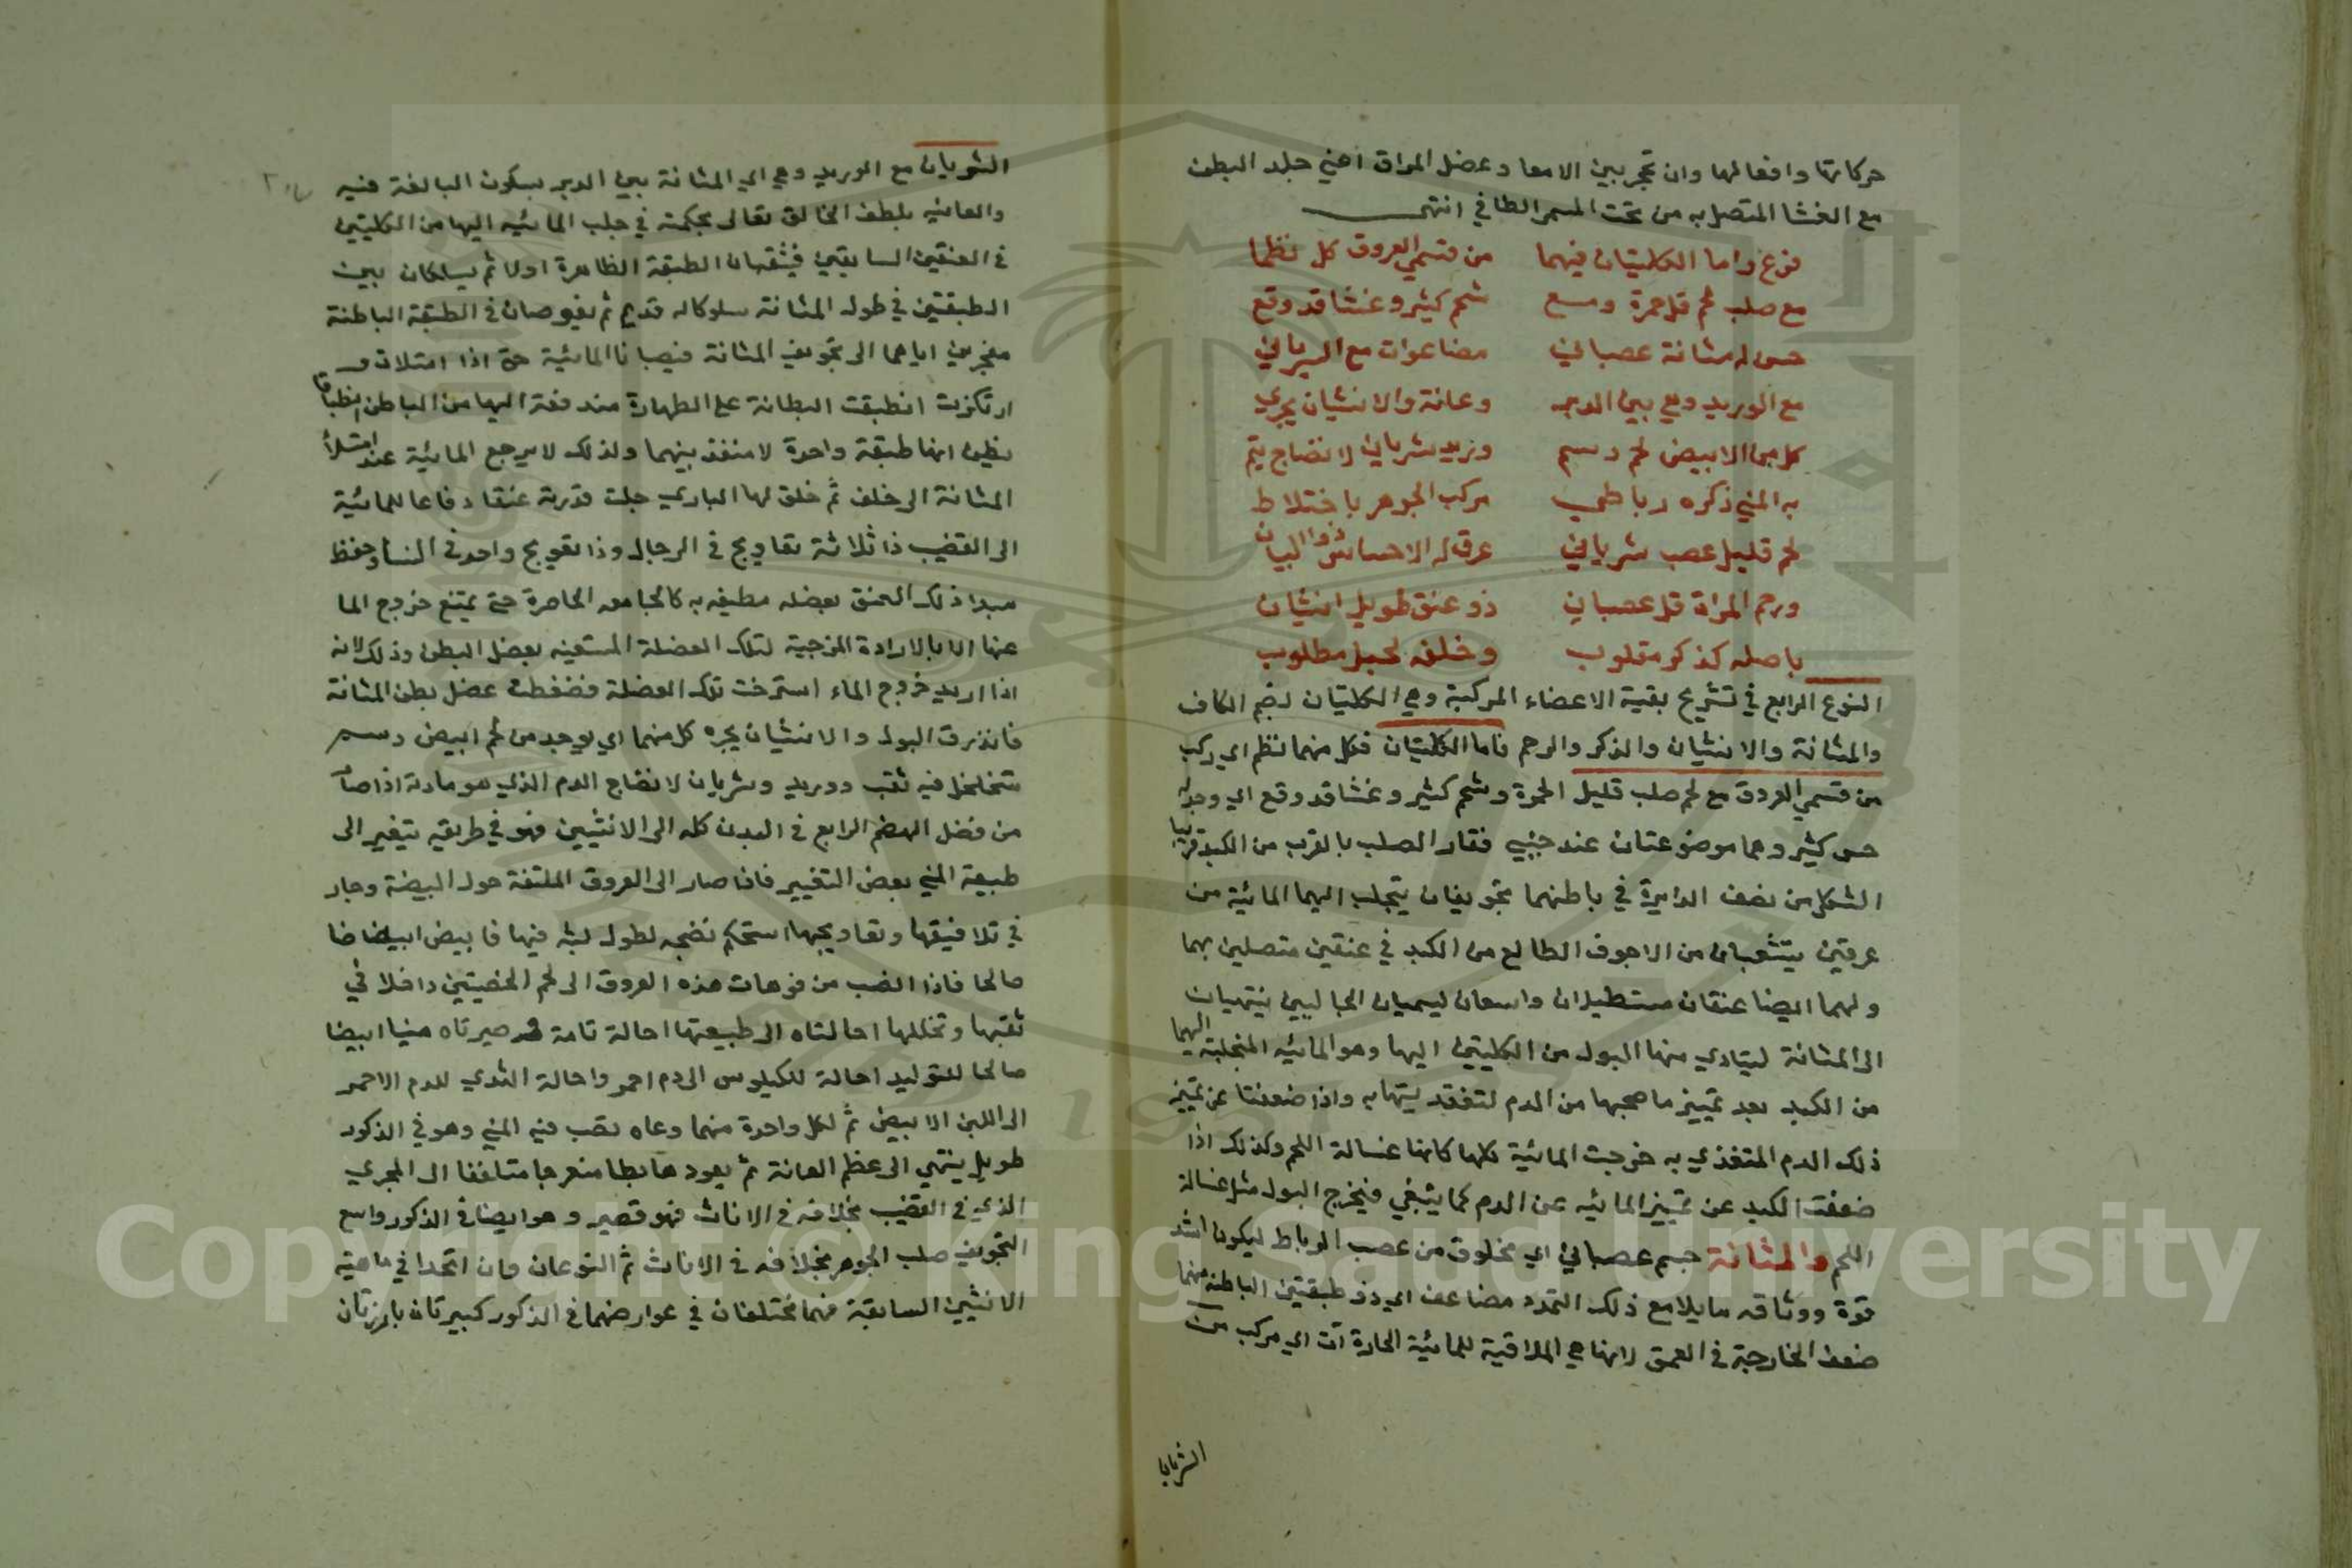 حركاتها وافعالها وان تحجر بين الامعا وعضل المراق اعني جلد البطن
مع الغشا المتصل به من تحت المسمى الطافي انتهى
فرع واما الكليتان فيهما من قسمي العروق كل نظما
مع صلب لحم قل حمرة ومع شحم كثير وغشا قد وقع
حس له مثانة عصباني مضاعفات مع الشرياني
مع الوريد وهي بين الدبر وعانة والانثيان يجري
كل من الابيض لحم دسم وريد شرياني لانضاج يتم
به المني ذكره رباطي مركب الجوهر باختلاط
لحم قليل عصب شرياني عرق له الاحساس ذو البيان
ورحم المراة قل عصباني ذو عنق طويل انثيان
باصله كذكر مقلوب وخلقه لحبل مطلوب
النوع الرابع في تشريح بقية الاعضاء المركبة وهي الكليتان بضم الكاف
والمثانة والانثيان والذكر والرحم فاما الكليتان فكل منهما نظم اي ركب
من قسمي العروق مع لحم صلب قليل الحمرة وشحم كثير وغشا قد وقع اي وجد له
حس كثير وهما موضوعتان عند جنبي فقار الصلب بالقرب من الكبد قريبا
الشكل من نصف الدايرة في باطنهما تجويفان يتجلب اليهما المائية من
عرقين يتشعبان من الاجوف الطالع من الكبد في عنقين متصلين بهما
ولهما ايضا عنقان مستطيلان واسعان يسميان الحالبين ينتهيان
الى المثانة ليتادي منها البول من الكليتين اليها وهو المائيه المنجلبة اليهما
من الكبد بعد تمييز ما صحبها من الدم لتغذيتها به واذا ضعفتا عن تمييز
ذلك الدم المتغذي به خرجت المائية كلها كانها غسالة اللحم وكذلك اذا
ضعفت الكبد عن تمييز المائيه عن الدم كما ينبغي فيخرج البول مثل غسالة
اللحم والمثانة جسم عصباني اي مخلوق من عصب الرباط ليكون اشد
قوة ووثاقه ما يلا مع ذلك التمدد مضاعف اي ذو طبقتين الباطنه منهما
ضعف الخارجة في العمق لانها هي الملاقية للمائية الحادة ات اي مركب من
الشريانا
الشريان مع الوريد وهي اي المثانة بين الدبر بسكون البا لغة فيه
والعانيه بلطف الخالق تعالى بحكمته في جلب المائيه اليها من الكليتين
في العنقين السابقين فيثقبان الطبقة الظاهرة اولا ثم يسلكان بين
الطبقتين في طول المثانة سلوكا له قدر ثم يغوصان في الطبقة الباطنة
مفجرين اياهما الى تجويف المثانة فيصبان المائية حتى اذا امتلات و
ارتكزت انطبقت البطانة على الظهارة مندفعة اليها من الباطن انطباقا
يظن انها طبقة واحدة لا منفذ بينهما ولذلك لا يرجع المائية عند امتلا
المثانة الى خلف ثم خلق لها الباري جلت قدرته عنقا دفاعا للمائية
الى القضيب ذا ثلاثة تعاويج في الرجال وذا تعويج واحد في النسا وحفظ
مبدا ذلك العنق بعضله مطيفه به كالحبا معه الحاصرة حتى يمتنع خروج الما
عنها الا بالارادة المزجية لتلك العضلة المستعينه بعضل البطن وذلك لانه
اذا اريد خروج الماء استرخت تلك العضلة فضغطت عضل بطن المثانة
فانذرق البول والانثيان يجره كل منهما اي يوجد من لحم ابيض دسم
متخلخل فيه ثقب ووريد وشريان لانضاج الدم الذي هو مادته اذا صار
من فضل الهضم الرابع في البدن كله الى الانثيين فهو في طريقه يتغير الى
طبيعة المني بعض التغيير فاذا صار الى العروق الملتفة حول البيضة وجار
في تلافيفها وتعاويجها استحكم نضجه لطول لبثه فيها فابيض ابيضاضا
صالحا فاذا انصب من فوهات هذه العروق الى لحم الخصيتين داخلا في
ثقبها وتخللها احالتاه الى طبيعتها احالة تامة قد صيرتاه منيا ابيضا
صالحا للتوليد احالة للكيلوس الى دم احمر واحالة الثدي للدم الاحمر
الى اللبن الابيض ثم لكل واحدة منهما وعاء تصب فيه المني وهو في الذكور
طويل ينتهي الى عظم العانة ثم يعود هابطا منعرجا متلففا الى المجرى
الذي في القضيب بخلافه في الاناث فهو قصير وهو ايضا في الذكور واسع
التجويف صلب الجوهر بخلافه في الاناث ثم النوعان وان اتحدا في ماهية
الانثيين السابقة فهما مختلفان في عوارضهما في الذكور كبيرتان بارزتان
Copyright © King Saud University